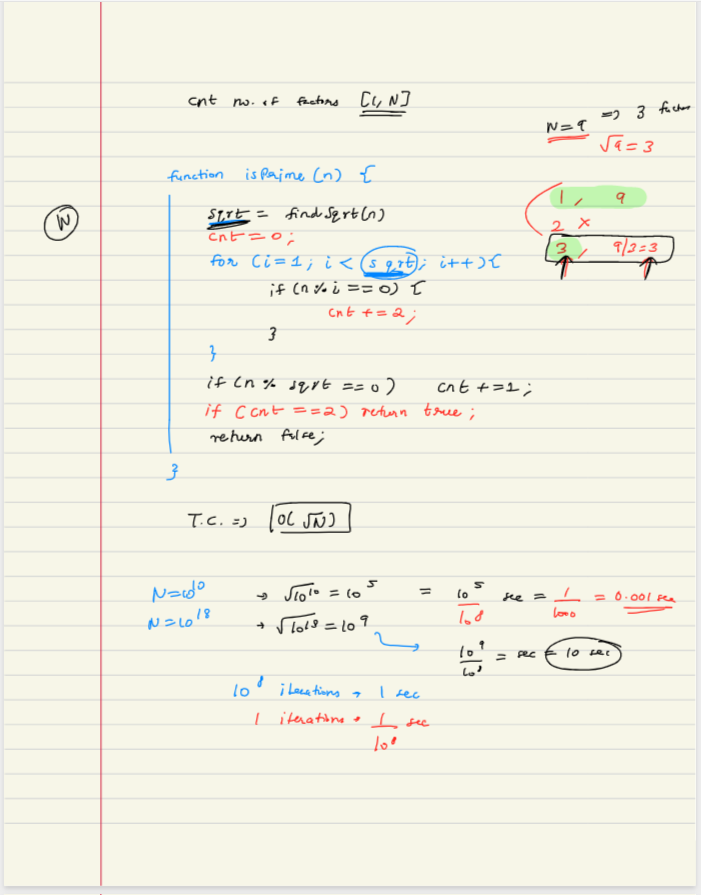 cnt no. of factors [1, N]
N=9 => 3 factors
√9 = 3
function isPrime (n) {
1, 9
W
sqrt = findSqrt(n)
2 ×
cnt = 0;
3, 9/3=3
for (i=1; i < sqrt; i++) {
if (n % i == 0) {
cnt += 2;
}
}
if (n % sqrt == 0) cnt += 1;
if (cnt == 2) return true;
return false;
}
T.C. => O(√N)
N=10^10 → √10^10 = 10^5 = 10^5/10^8 sec = 1/1000 = 0.001 sec
N=10^18 → √10^18 = 10^9
10^9/10^8 = sec = 10 sec
10^8 iterations → 1 sec
1 iterations → 1/10^8 sec